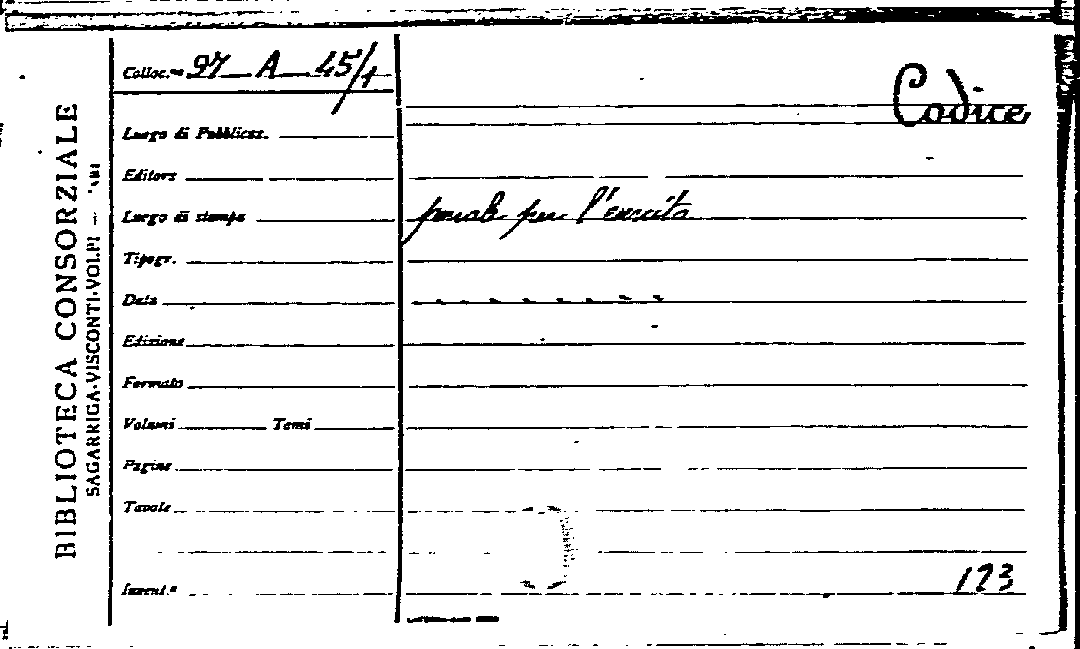 BIBLIOTECA CONSORZIALE
SAGARRIGA-VISCONTI-VOLPI -
Colloc.ne 97 A 45/1
Codice
Luogo di Pubblicaz.
Editore
Luogo di stampa
penale per l'esercito
Tipogr.
Data
Edizione
Formato
Volumi Tomi
Pagine
Tavole
Invent.°
123